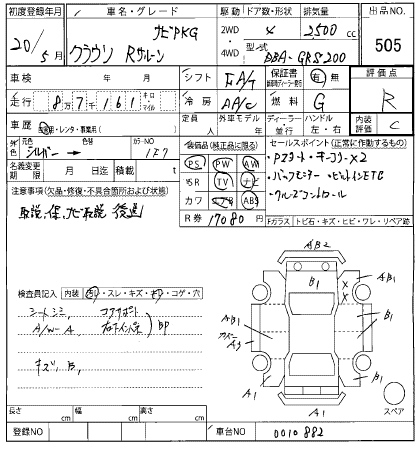 初度登録年月 車名・グレード 駆動 ドア数・形状 排気量 出品NO.
20/5月 クラウン Rサルーン ナビPKG
2WD 4WD 4 2500 cc
型式 DBA-GRS200
505
車検 年 月 シフト FA/T 保証書 有・無 評価点
走行 8万7千161 キロ・マイル 冷房 AA/C 燃料 G R
車歴 自家用・レンタ・事業用( ) 定員 人 外車モデル 年 ディーラー 並行 ハンドル 左・右 内装評価 C
外色 元色 シルバー → カラーNO 1F7
装備品(純正品に限る) セールスポイント(正常に作動するもの)
名義変更期限 月 日迄 積載 t
PS PW AW
SR TV ナビ
カワ エアB ABS
R券 17080 円
・Pスタート・キーフリーX2
・バックモニター・ビルトインETC
・クルーズコントロール
注意事項(欠品・修復・不具合箇所および状態)
取説、保、ナビ取説 後送
Fガラス トビ石・キズ・ヒビ・ワレ・リペア跡
検査員記入 内装 ・スレ・キズ・・コゲ・穴
シートシミ
A/W-A
BP
キズ、B、
AB2
B1
A B1
X
X
AB1
A3
B1
A1
B1
A1
スペア
長さ cm 幅 cm 高さ cm
登録NO 車台NO 0010882